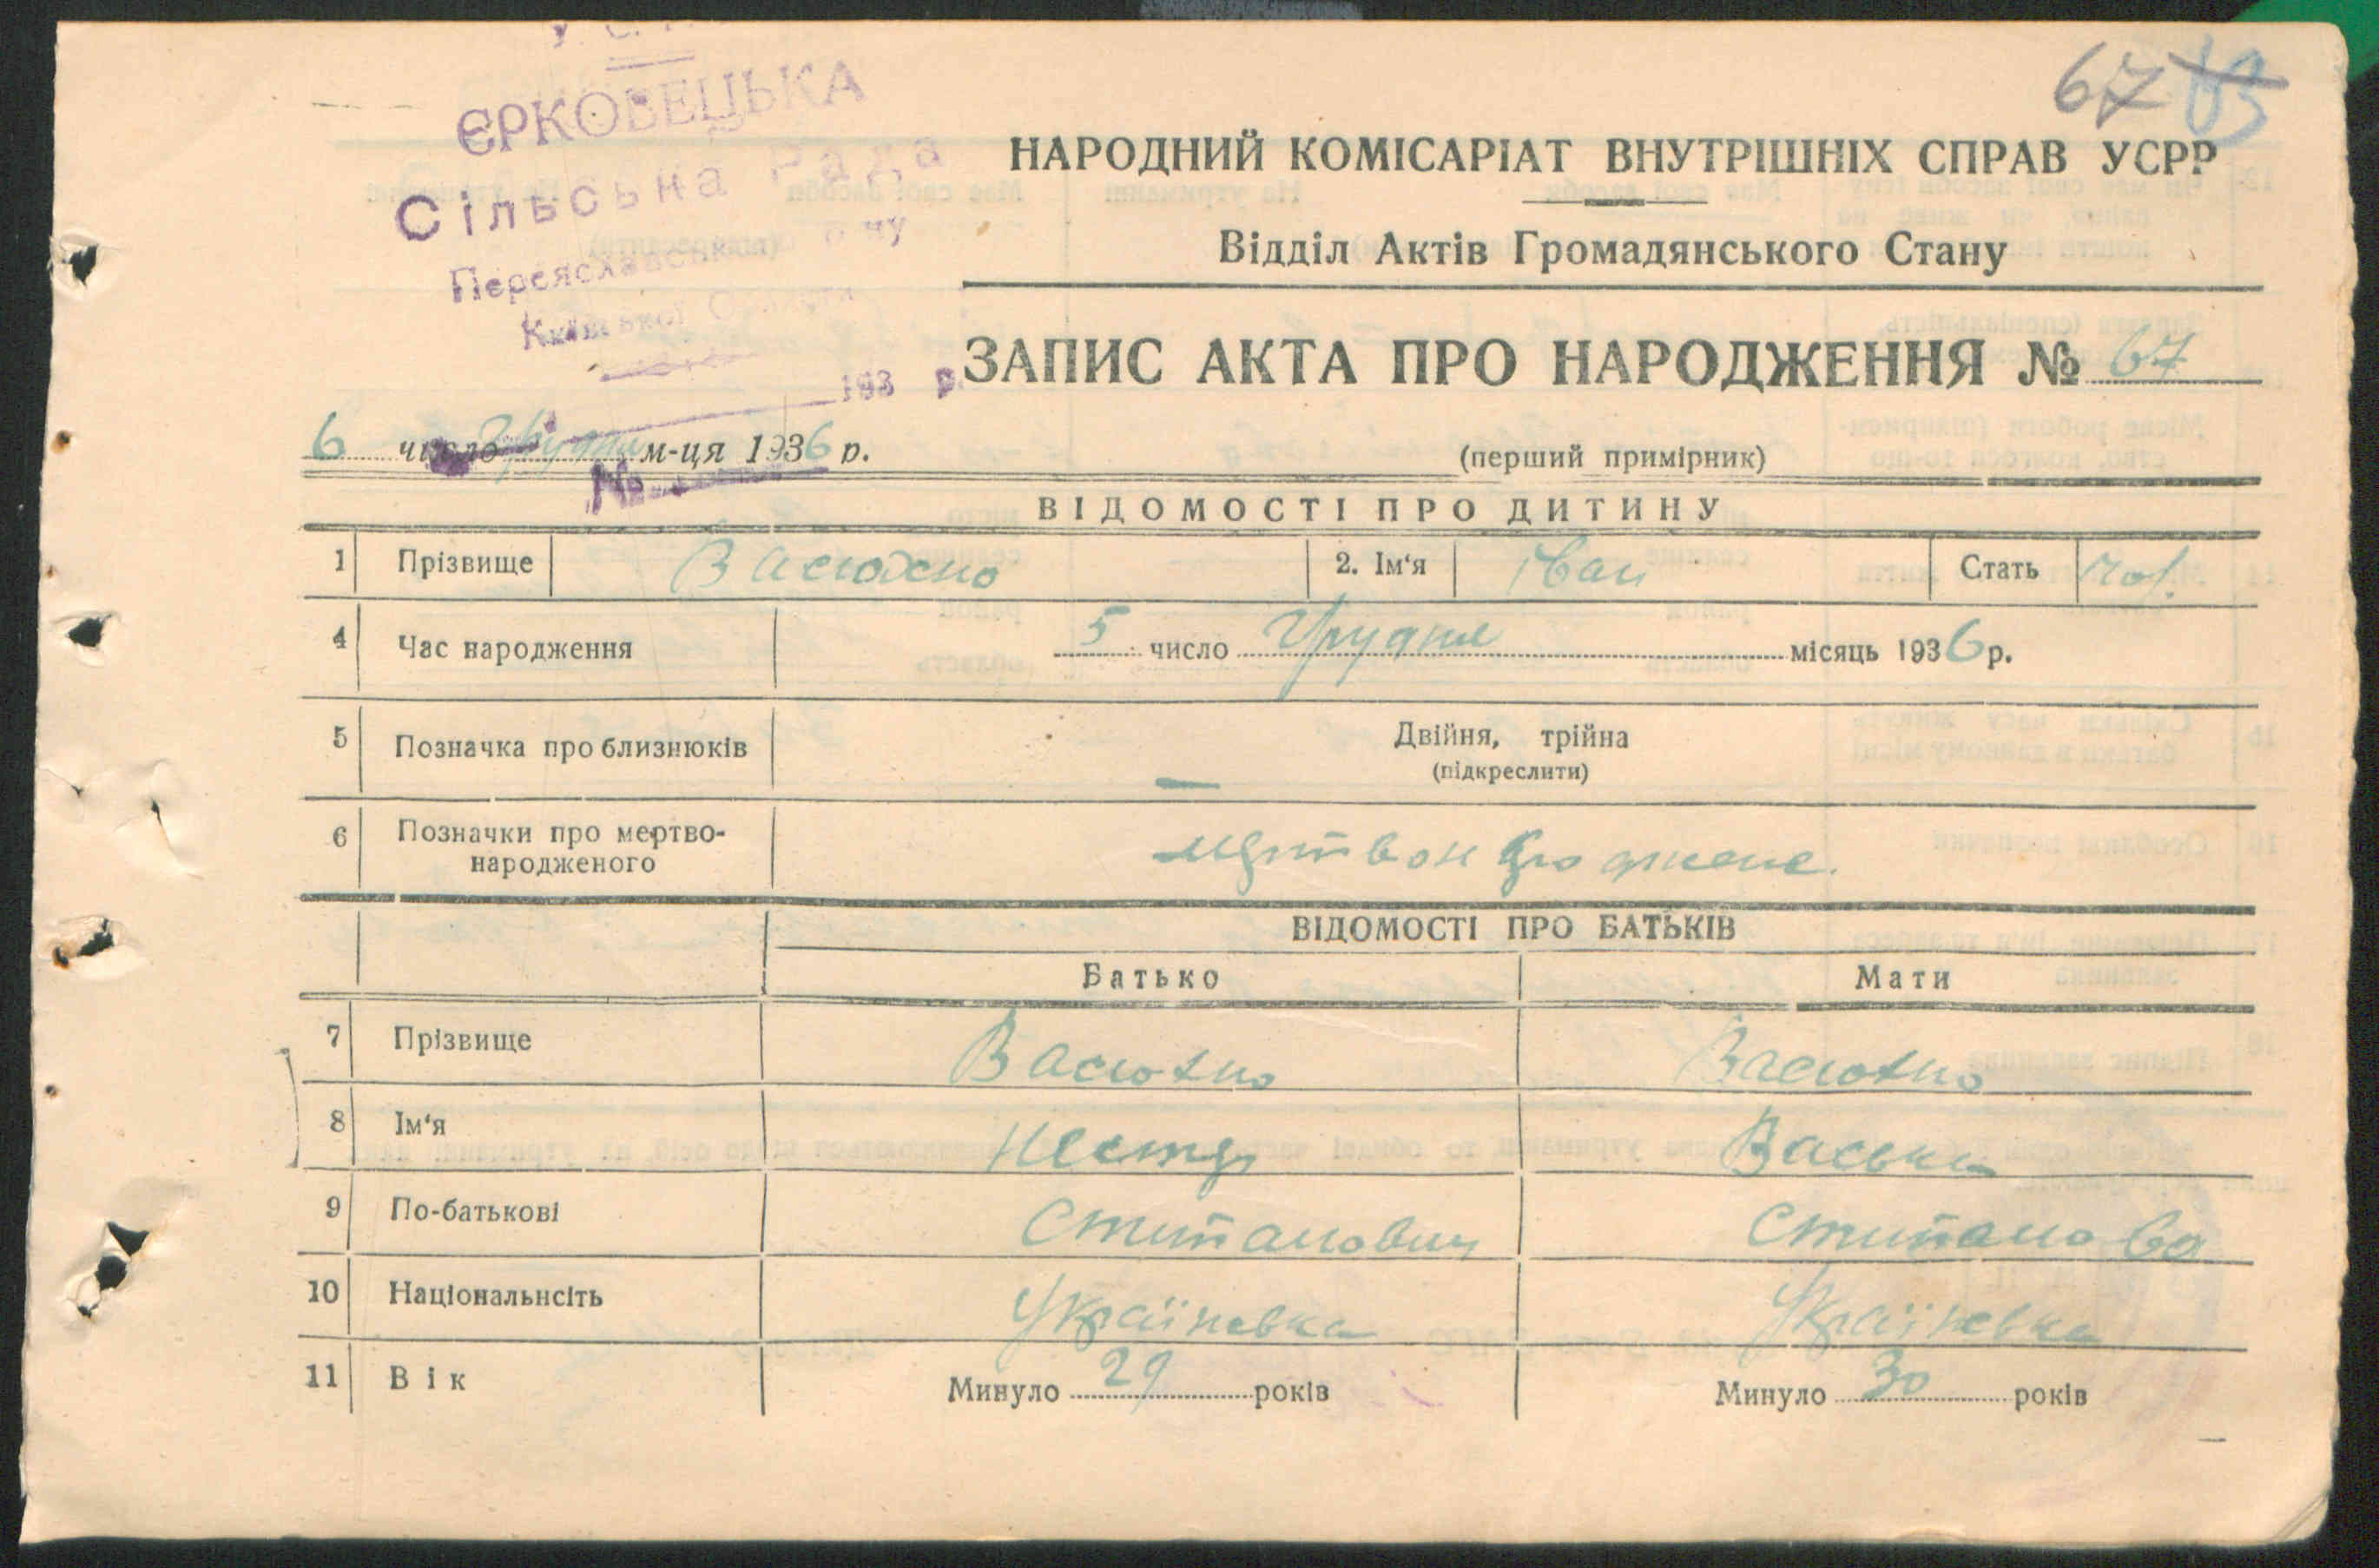 ЄРКОВЕЦЬКА
Сільська Рада
Переяславськ
Київської Області
193 р.
№
67
НАРОДНИЙ КОМІСАРІАТ ВНУТРІШНІХ СПРАВ УСРР
Відділ Актів Громадянського Стану
ЗАПИС АКТА ПРО НАРОДЖЕННЯ № 67
6 число Грудня м-ця 1936 р.
(перший примірник)
ВІДОМОСТІ ПРО ДИТИНУ
1 Прізвище 2. Ім'я Іван Стать чол.
4 Час народження 5 число Грудня місяць 1936 р.
5 Позначка про близнюків Двійня, трійна
(підкреслити)
6 Позначки про мертво-
народженого
ВІДОМОСТІ ПРО БАТЬКІВ
Батько Мати
7 Прізвище
8 Ім'я Нестер Васька
9 По-батькові Стипанович Стипанова
10 Національнсіть Україневка Україневка
11 Вік Минуло 29 років Минуло 30 років